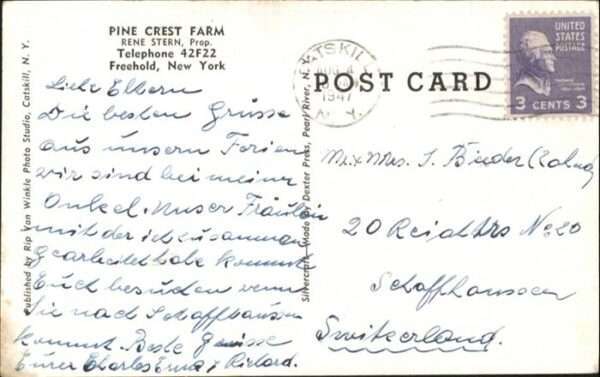 PINE CREST FARM
RENE STERN, Prop.
Telephone 42F22
Freehold, New York
Liebe Eltern
Die besten Grüsse
aus unsern Ferien
wir sind bei meinem
Onkel. Unser Fräulein
mit der ich zusammen
gearbeitet habe kommt
Euch besuchen wenn
Sie nach Schaffhausen
kommt. Beste Grüsse
Eurer Charles Erna & Richard.
Published by Rip Van Winkle Photo Studio, Catskill, N. Y.
Silvercraft Made by Dexter Press, Pearl River, N. Y.
CATSKILL
AUG 4
1947
N. Y.
POST CARD
UNITED
STATES
POSTAGE
3 CENTS 3
Mr & Mrs.
20 Reichstrs No 20
Schaffhausen
Switzerland.